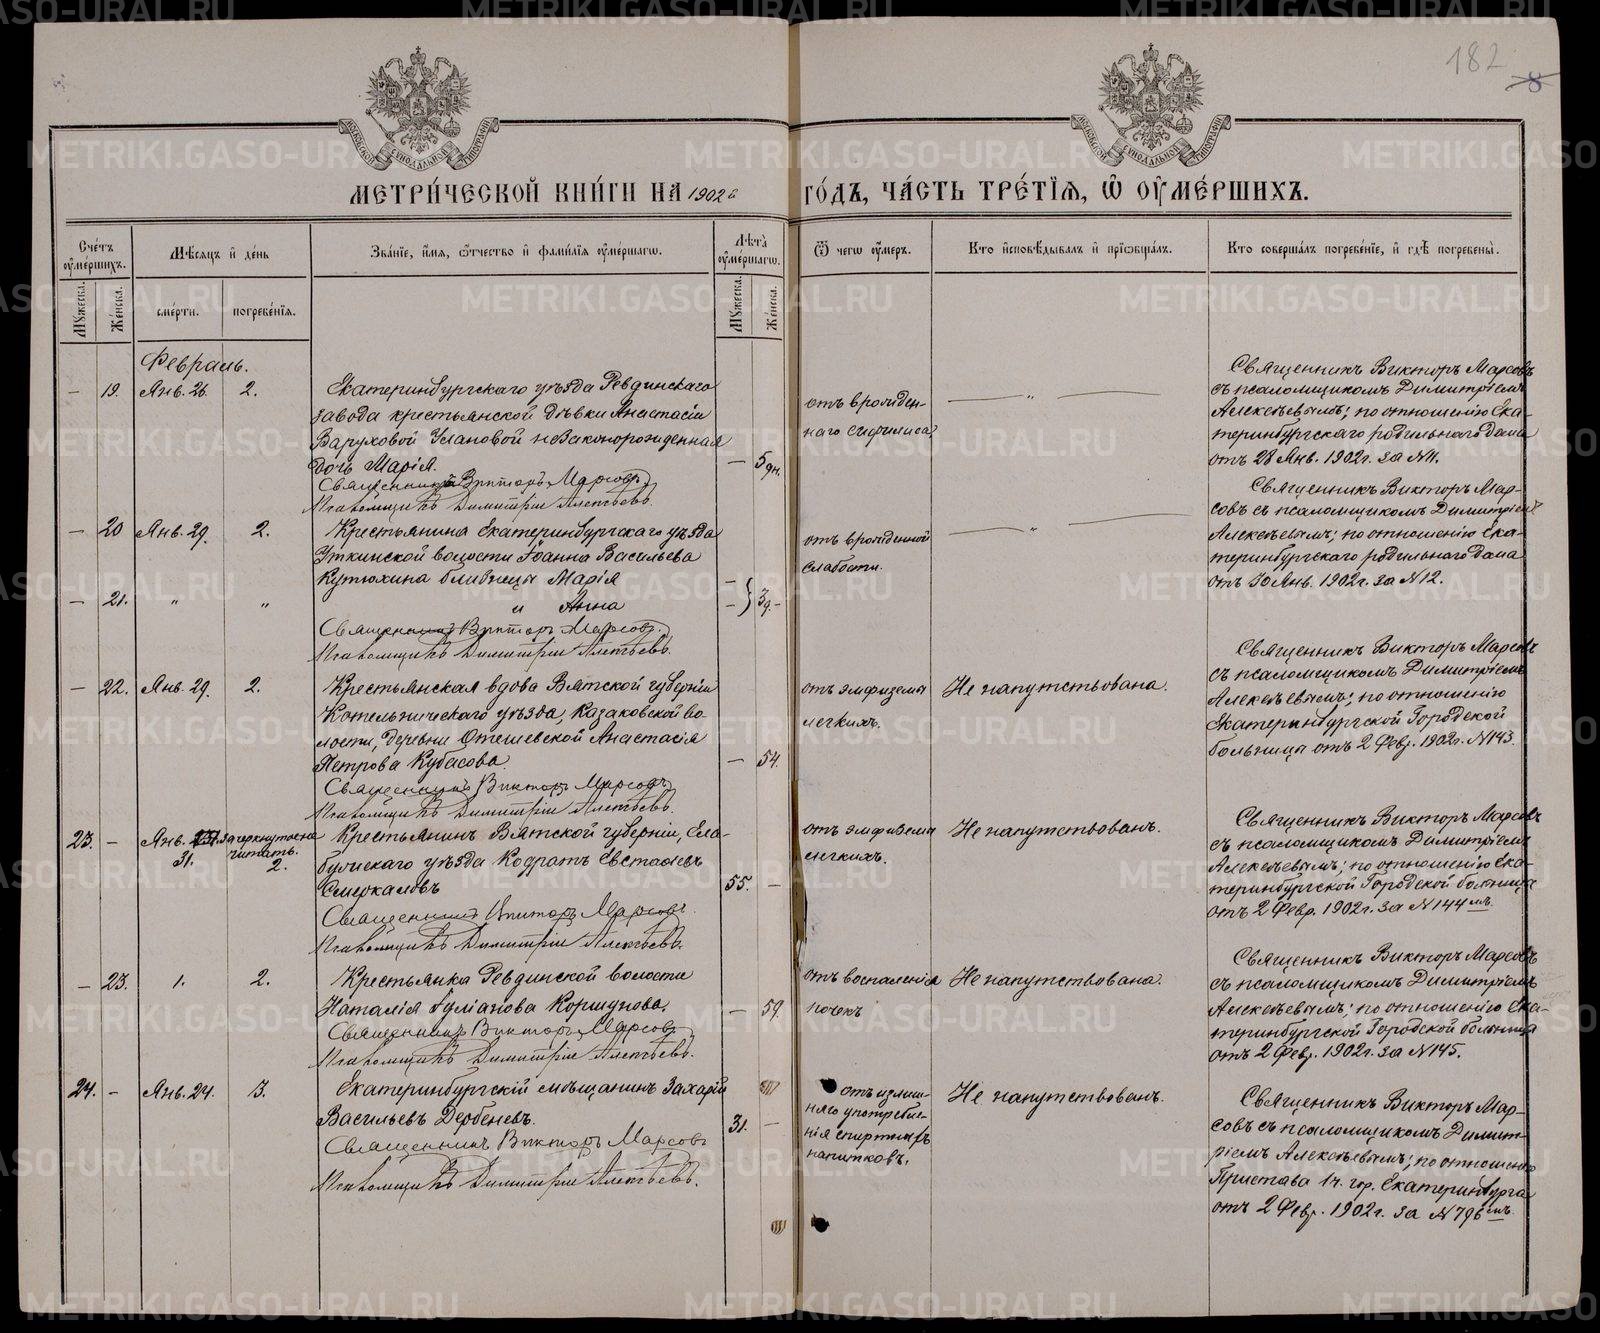 182
МОСКОВСКОЙ СѴНОДАЛЬНОЙ ТИПОГРАФІИ
МОСКОВСКОЙ СѴНОДАЛЬНОЙ ТИПОГРАФІИ
МЕТРИ́ЧЕСКОЙ КНИ́ГИ НА 1902 й ГО́ДЪ, ЧА́СТЬ ТРЕ́ТЇѦ, Ѽ ОУ҆МЕ́РШИХЪ.
Сче́тъ оу҆ме́ршихъ.
Мѣ́сѧцъ и҆ де́нь
Зва́нїе, и҆́мѧ, ѻ҆́тчество и҆ фами́лїѧ оу҆ме́ршагѡ.
Лѣ́та оу҆ме́ршагѡ.
Ѿ чегѡ̀ оу҆́меръ.
Кто̀ и҆сповѣ́дывалъ и҆ прїѡбща́лъ.
Кто̀ соверша́лъ погребе́нїе, и҆ гдѣ̀ погребены̀.
Мꙋ́жеска.
Же́нска.
сме́рти.
погребе́нїѧ.
Мꙋ́жеска.
Же́нска.
Февраль.
— 19. Янв. 26. 2.
Екатеринбургскаго уѣзда Ревдинскаго
завода крестьянской дѣвки Анастасіи
Варуховой Улановой незаконорожденная
дочь Марія.
— 5 дн.
Священникъ Викторъ Марсовъ
Псаломщикъ Димитрій Алексѣевъ.
отъ врожден-
наго сифилиса.
— „ —
Священникъ Викторъ Марсовъ
съ псаломщикомъ Димитріемъ
Алексѣевымъ; по отношенію Ека-
теринбургскаго родильнаго дома
отъ 28 Янв. 1902 г. за № 11.
— 20 Янв. 29. 2.
Крестьянина Екатеринбургскаго уѣзда
Уткинской волости Іоанна Васильева
Кутюхина близнецы Марія
— 21. „ „
и Анна
— } 3 д. —
Священникъ Викторъ Марсовъ.
Псаломщикъ Димитрій Алексѣевъ.
отъ врожденной
слабости.
— „ —
Священникъ Викторъ Мар-
совъ съ псаломщикомъ Димитріемъ
Алексѣевымъ; по отношенію Ека-
теринбургскаго родильнаго дома
отъ 30 Янв. 1902 г. за № 12.
— 22. Янв. 29. 2.
Крестьянская вдова Вятской губерніи
Котельническаго уѣзда, Казаковской во-
лости, деревни Отешевской Анастасія
Петрова Кубасова.
— 54.
Священникъ Викторъ Марсовъ
Псаломщикъ Димитрій Алексѣевъ.
отъ эмфиземы
легкихъ.
Не напутствована.
Священникъ Викторъ Марсовъ
съ псаломщикомъ Димитріемъ
Алексѣевымъ; по отношенію
Екатеринбургской Городской
больницы отъ 2 Февр. 1902 г. № 143.
23. — Янв. зачеркнутое на
31. читать. 2.
Крестьянинъ Вятской губерніи, Ела-
бужскаго уѣзда Кодратъ Евстафіевъ
Смеркаловъ
55. —
Священникъ Викторъ Марсовъ.
Псаломщикъ Димитрій Алексѣевъ.
отъ эмфиземы
легкихъ.
Не напутствованъ.
Священникъ Викторъ Марсовъ
съ псаломщикомъ Димитріемъ
Алексѣевымъ; по отношенію Ека-
теринбургской Городской больницы
отъ 2 Февр. 1902 г. за № 144 мъ.
— 23. 1. 2.
Крестьянка Ревдинской волости
Наталія Іуліанова Коршунова.
— 59.
Священникъ Викторъ Марсовъ
Псаломщикъ Димитрій Алексѣевъ.
отъ воспаленія
почекъ
Не напутствована.
Священникъ Викторъ Марсовъ
съ псаломщикомъ Димитріемъ
Алексѣевымъ; по отношенію Ека-
теринбургской Городской больницы
отъ 2 Февр. 1902 г. за № 145.
24. — Янв. 24. 3.
Екатеринбургскій мѣщанинъ Захарій
Васильевъ Дербеневъ.
31. —
Священникъ Викторъ Марсовъ
Псаломщикъ Димитрій Алексѣевъ.
отъ излиш-
няго употребле-
нія спиртныхъ
напитковъ.
Не напутствованъ.
Священникъ Викторъ Мар-
совъ съ псаломщикомъ Димит-
ріемъ Алексѣевымъ; по отношенію
Пристава 1 ч. гор. Екатеринбурга
отъ 2 Февр. 1902 г. за № 796 мъ.
METRIKI.GASO-URAL.RU